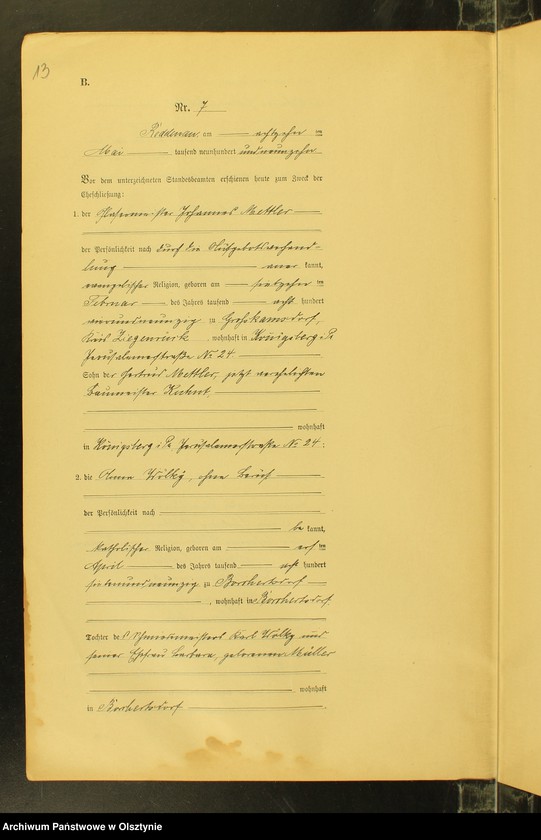 13
B.
Nr. 7
am achtzehnten
Mai tausend neunhundert und neunzehn
Vor dem unterzeichneten Standesbeamten erschienen heute zum Zweck der
Eheschließung:
1. der Johannes Mettler
der Persönlichkeit nach durch die Aufgebotsverhand-
lung anerkannt,
evangelischer Religion, geboren am siebzehnten
Februar des Jahres tausend acht hundert
vierundneunzig zu Großkamsdorf,
Kreis Ziegenrück, wohnhaft in Königsberg i. Pr.
Jerusalemerstraße No 24
Sohn der Mettler, jetzt verehelichten
Baumeister
wohnhaft
in Königsberg i. Pr. Jerusalemerstraße No 24.
2. die Anna Wölky, ohne Beruf
der Persönlichkeit nach
bekannt,
katholischer Religion, geboren am
April des Jahres tausend acht hundert
siebenundneunzig zu Borchertsdorf
, wohnhaft in Borchertsdorf.
Tochter des Karl Wölky und
seiner Ehefrau Barbara, geborenen Müller
wohnhaft
in Borchertsdorf.
Archiwum Państwowe w Olsztynie